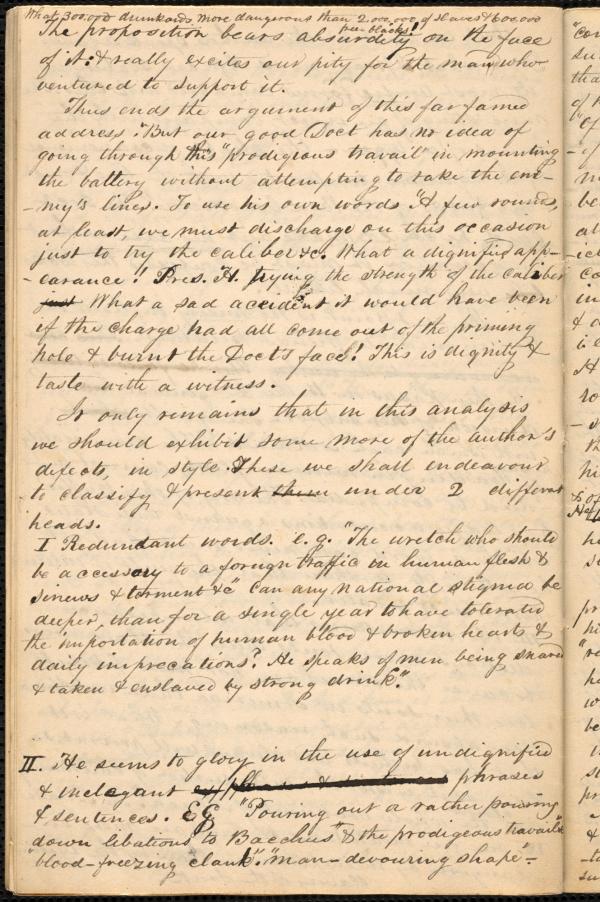 What 300,000 drunkards more dangerous than 2,000,000 of slaves & 600,000
free blacks!
The proposition bears absurdity on the face
of it: & really excites our pity for the man who
ventured to support it.
Thus ends the argument of this far famed
address. "But our good Doct has no idea of
going through this "prodigious travail" in mounting
the battery without attempting to rake the ene-
-my's lines. To use his own words "A few rounds,
at least, we must discharge on this occasion
just to try the caliber &c. What a dignified app-
-earance! Pres. H. trying the strength of the caliber
just What a sad accident it would have been
if the charge had all come out of the priming
hole & burnt the Doct's face! This is dignity &
taste with a witness.
It only remains that in this analysis
we should exhibit some more of the author's
defects, in style. These we shall endeavour
to classify & present them under 2 different
heads.
I Redundant words. e.g. "The wretch who should
be accessory to a foreign traffic in human flesh &
sinews & torment &c" Can any national stigma be
deeper, than for a single year to have tolerated
the importation of human blood & broken hearts &
daily imprecations? He speaks of men being snared
& taken & enslaved by strong drink".
II. He seems to glory in the use of undignified
& inelegant phrases
& sentences. EG "Pouring out a rather poising
down libations to Bacchus" & the prodigeous travail"
"blood-freezing clank". "man-devouring shape"-